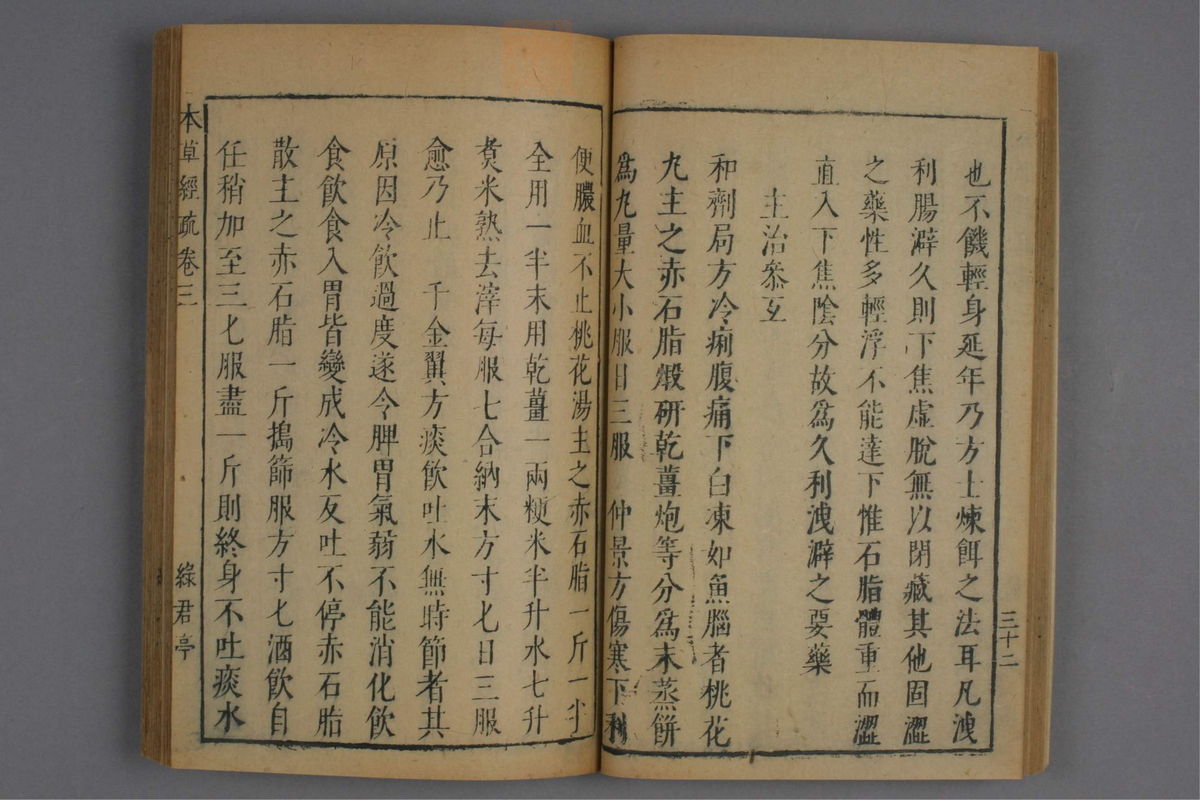 也不饑輕身延年乃方士煉餌之法耳凡洩
利腸澼久則下焦虛脫無以閉藏其他固澀
之藥性多輕浮不能達下惟石脂體重而澀
直入下焦陰分故爲久利洩澼之要藥
主治叅互
和劑局方冷痢腹痛下白凍如魚腦者桃花
丸主之赤石脂煅研乾薑炮等分爲末蒸餅
爲丸量大小服日三服 仲景方傷寒下利
三十二
便膿血不止桃花湯主之赤石脂一斤一半
全用一半末用乾薑一兩粳米半升水七升
煑米熟去滓每服七合納末方寸匕日三服
愈乃止 千金翼方痰飲吐水無時節者其
原因冷飲過度遂令脾胃氣弱不能消化飲
食飲食入胃皆變成冷水反吐不停赤石脂
散主之赤石脂一斤搗篩服方寸匕酒飲自
任稍加至三匕服盡一斤則終身不吐痰水
本草經疏卷三 綠君亭